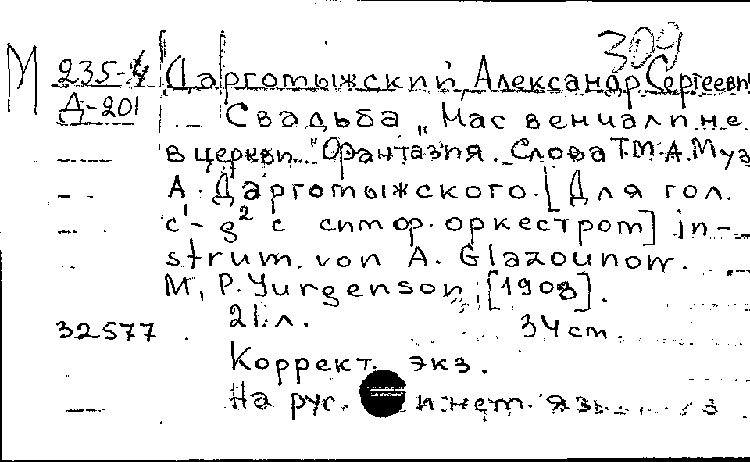 309
М 235-4 Даргомыжский, Александр Сергеевич
Д-201 Свадьба „Нас венчали не
в церкви..." Фантазия. Слова Т.М.А. Муз
А. Даргомыжского. [Для гол.
c¹-g² с симф. оркестром] in-
strum. von A. Glazounow.
М., P. Yurgenson, [1908].
21 л. 34 cm.
32577
Коррект. экз.
На рус. и нем. яз